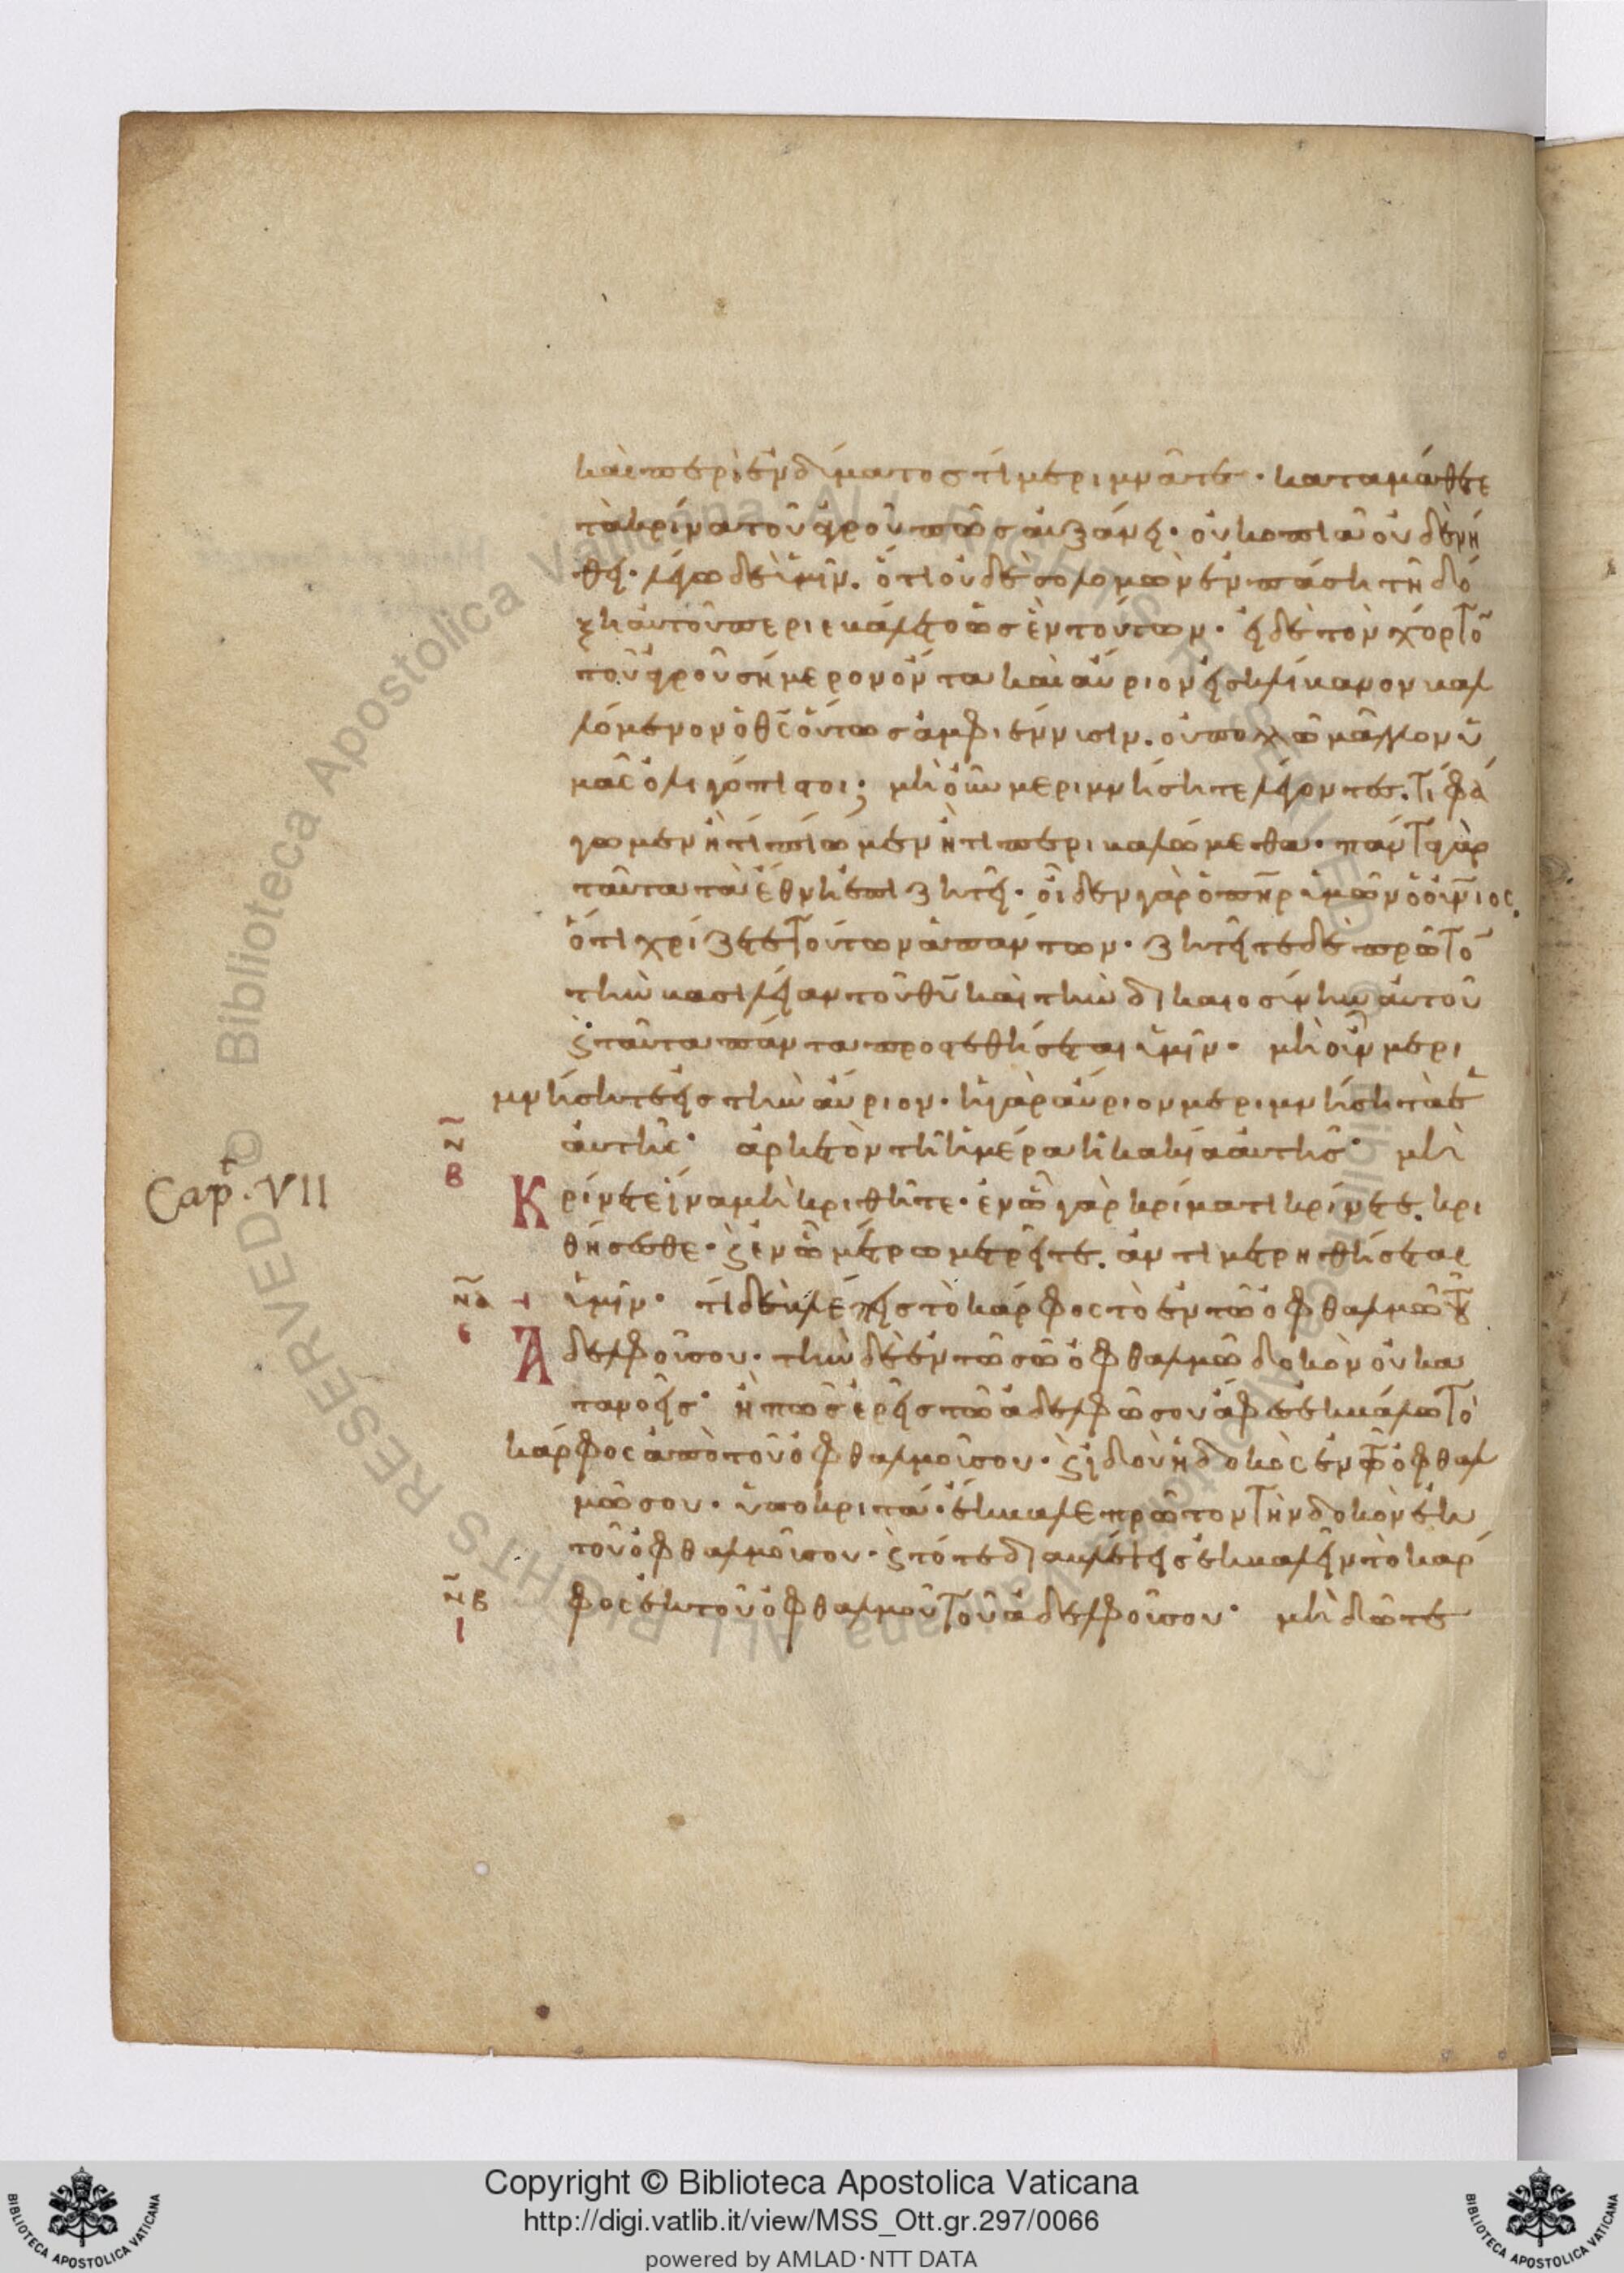 καὶ περὶ ἐνδύματος τί μεριμνᾶτε· καταμάθετε
τὰ κρίνα τοῦ ἀγροῦ πῶς αὐξάνει· οὐ κοπιᾶ οὐδὲ νή
θει· λέγω δὲ ὑμῖν. ὅτι οὐδὲ σολομὼν ἐν πάση τῆ δό
ξη αὐτοῦ περιεβάλετο ὡς ἓν τούτων· εἰ δὲ τὸν χόρτο
τοῦ ἀγροῦ σήμερον ὄντα καὶ αὔριον εἰς κλίβανον βαλ
λόμενον ὁ θς οὕτως ἀμφιέννυσιν. οὐ πολλῶ μᾶλλον ὑ
μᾶς ὀλιγόπιστοι; μὴ οὖν μεριμνήσητε λέγοντες. τί φά
γωμεν ἢ τί πίωμεν ἢ τί περιβαλώμεθα· πάντα γὰρ
ταῦτα τὰ ἔθνη ἐπιζητεῖ· οἶδεν γὰρ ὁ πηρ ὑμῶν ὁ οὐνιος.
ὅτι χρήζετε τούτων ἁπάντων· ζητεῖτε δὲ πρῶτο
τὴν βασιλείαν τοῦ θυ καὶ τὴν δικαιοσύνην αὐτοῦ
ϛ ταῦτα πάντα προστεθήσεται ὑμῖν· μὴ οὖν μερι
μνήσητε εἰς τὴν αὔριον· ἡ γὰρ αὔριον μεριμνήσει τὰ ἑ
αυτῆς· ἀρκετὸν τῆ ἡμέρα ἡ κακία αὐτῆς· μὴ
ν
β
Cap. VII
Κρίνετε ἵνα μὴ κριθῆτε· ἐν ὧ γὰρ κρίματι κρίνετε. κρι
θήσεσθε· ϛ ἐν ὧ μέτρω μετρεῖτε. ἀντιμετρηθήσεται
να
ὑμῖν· τί δὲ βλέπεις τὸ κάρφος τὸ ἐν τῶ ὀφθαλμῶ τοῦ
ε
Ἀδελφοῦ σου· τὴν δὲ ἐν τῶ σῶ ὀφθαλμῶ δοκὸν οὐ κα
τανοεῖς· ἢ πῶς ἐρεῖς τῶ ἀδελφῶ σου ἄφες ἐκβάλω τὸ
κάρφος ἀπὸ τοῦ ὀφθαλμοῦ σου· ϛ ἰδοὺ ἡ δοκὸς ἐν τῶ ὀφθαλ
μῶ σου· ὑποκριτά· ἔκβαλε πρῶτον τὴν δοκὸν ἐκ
τοῦ ὀφθαλμοῦ σου· ϛ τότε διαβλέψεις ἐκβαλεῖν τὸ κάρ
νβ
ι
φος ἐκ τοῦ ὀφθαλμοῦ τοῦ ἀδελφοῦ σου· μὴ δῶτε
Copyright © Biblioteca Apostolica Vaticana
http://digi.vatlib.it/view/MSS_Ott.gr.297/0066
powered by AMLAD·NTT DATA